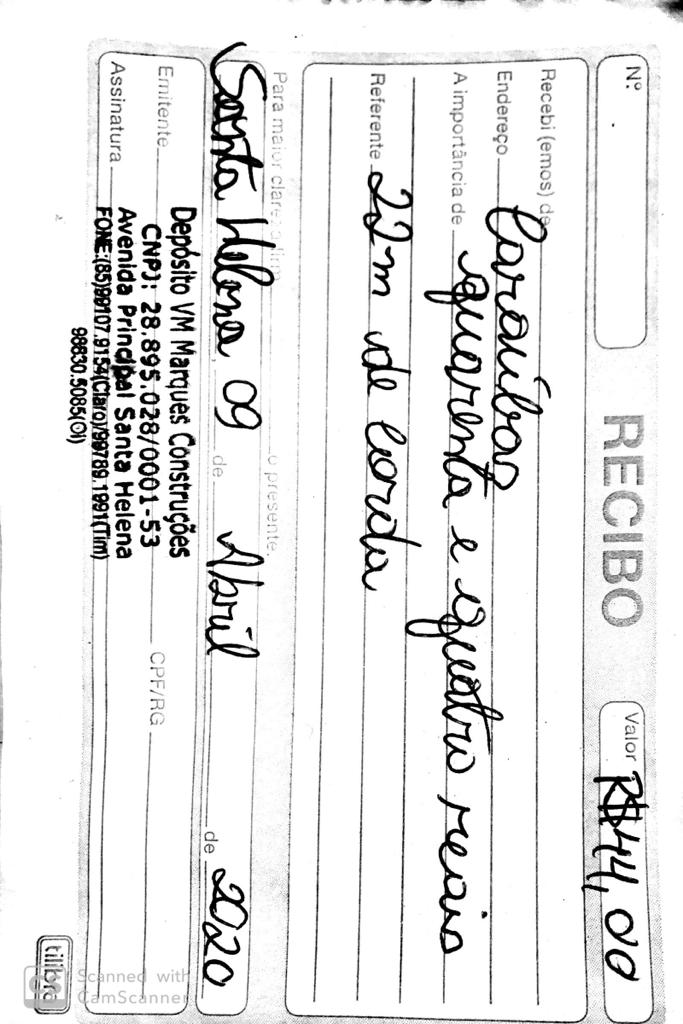 Nº
RECIBO
Valor R$44,00
Recebi (emos) de
Endereço Caraúbas
A importância de quarenta e quatro reais
Referente 22m de corda
Para maior clareza o presente.
Santa Helena 09 de Abril de 2020
Emitente CPF/RG
Assinatura
Depósito VM Marques Construções
CNPJ: 28.895.028/0001-53
Avenida Principal Santa Helena
FONE:(85)99107.9154(Claro)/99789.1991(Tim)
98830.5085(OI)
tilibra
CS Scanned with
CamScanner